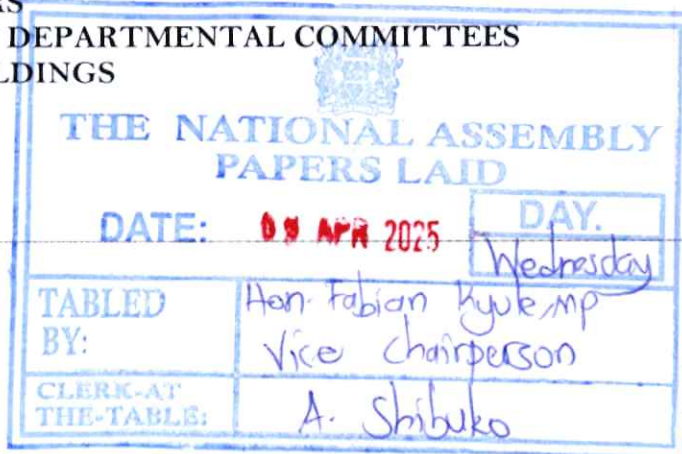 DEPARTMENTAL COMMITTEES
LDINGS
THE NATIONAL ASSEMBLY
PAPERS LAID
DATE: 09 APR 2025
DAY.
Wednesday
TABLED BY: Hon. Fabian Kyule, MP
Vice Chairperson
CLERK-AT
THE-TABLE: A. Shibuko